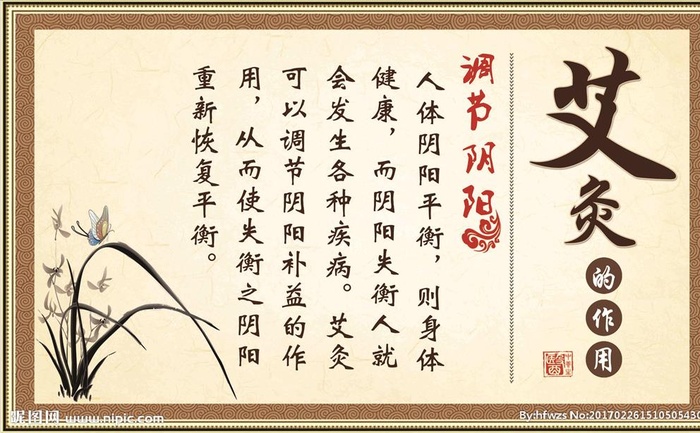 艾灸
的作用
调节阴阳
人体阴阳平衡，则身体
健康，而阴阳失衡人就
会发生各种疾病。艾灸
可以调节阴阳补益的作
用，从而使失衡之阴阳
重新恢复平衡。
昵图网 www.nipic.com
By:hfwzs No:20170226151050543